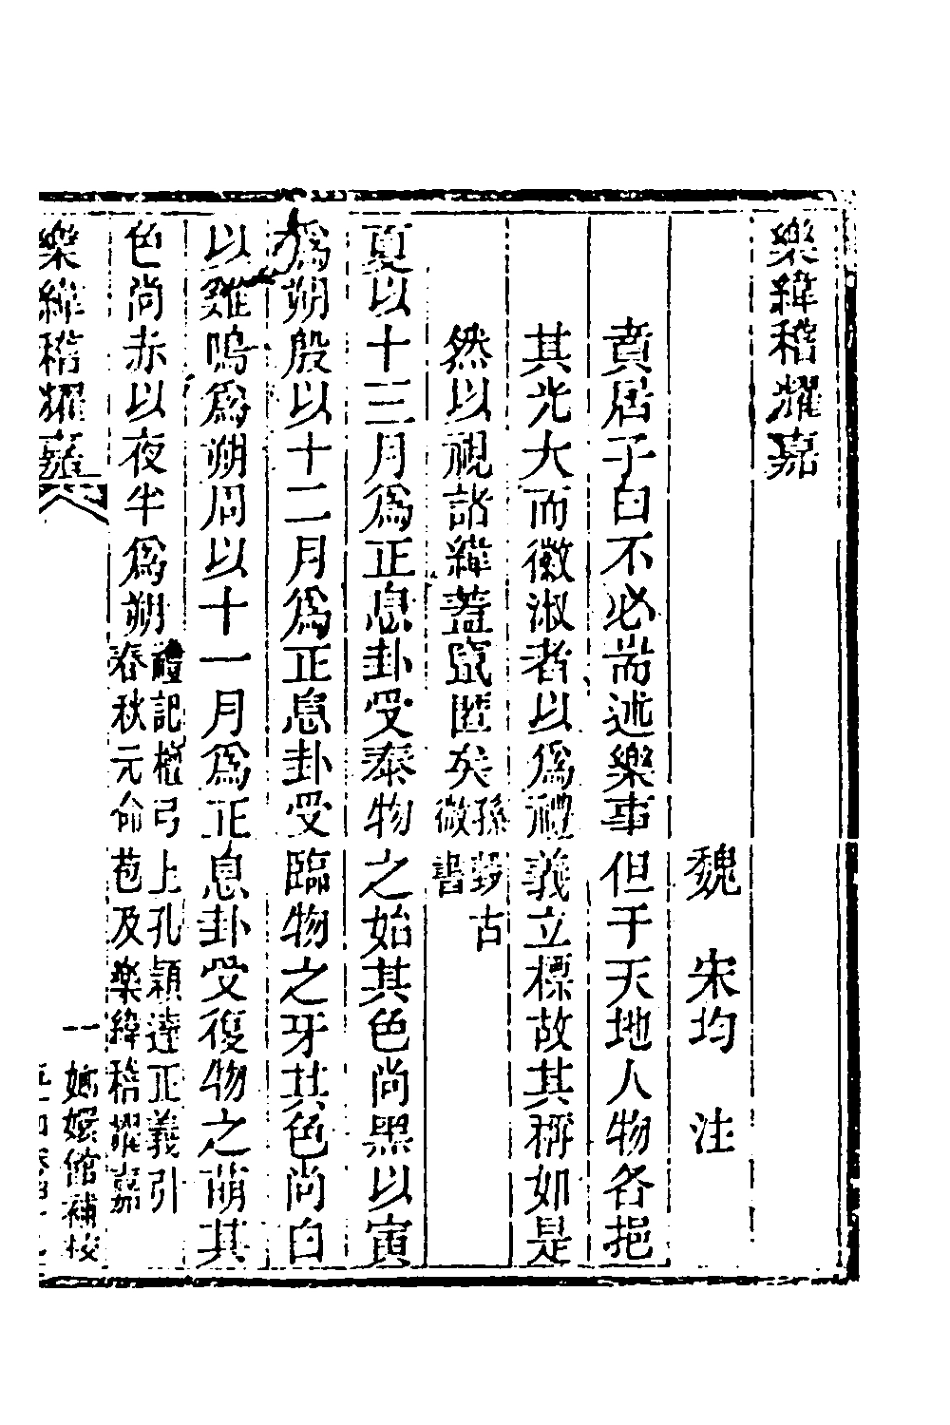 樂緯稽耀嘉
魏　宋均　注
賁居子曰不必耑述樂事但于天地人物各挹
其光大而徽淑者以爲禮義立標故其稱如是
然以視諸緯葢寂匿矣孫瑴古微書
夏以十三月爲正息卦受泰物之始其色尚黑以寅
爲朔殷以十二月爲正息卦受臨物之牙其色尚白
以雞鳴爲朔周以十一月爲正息卦受復物之萌其
色尚赤以夜半爲朔禮記檀弓上孔穎達正義引
春秋元命苞及樂緯稽耀嘉
樂緯稽耀嘉
一　嫏嬛館補校